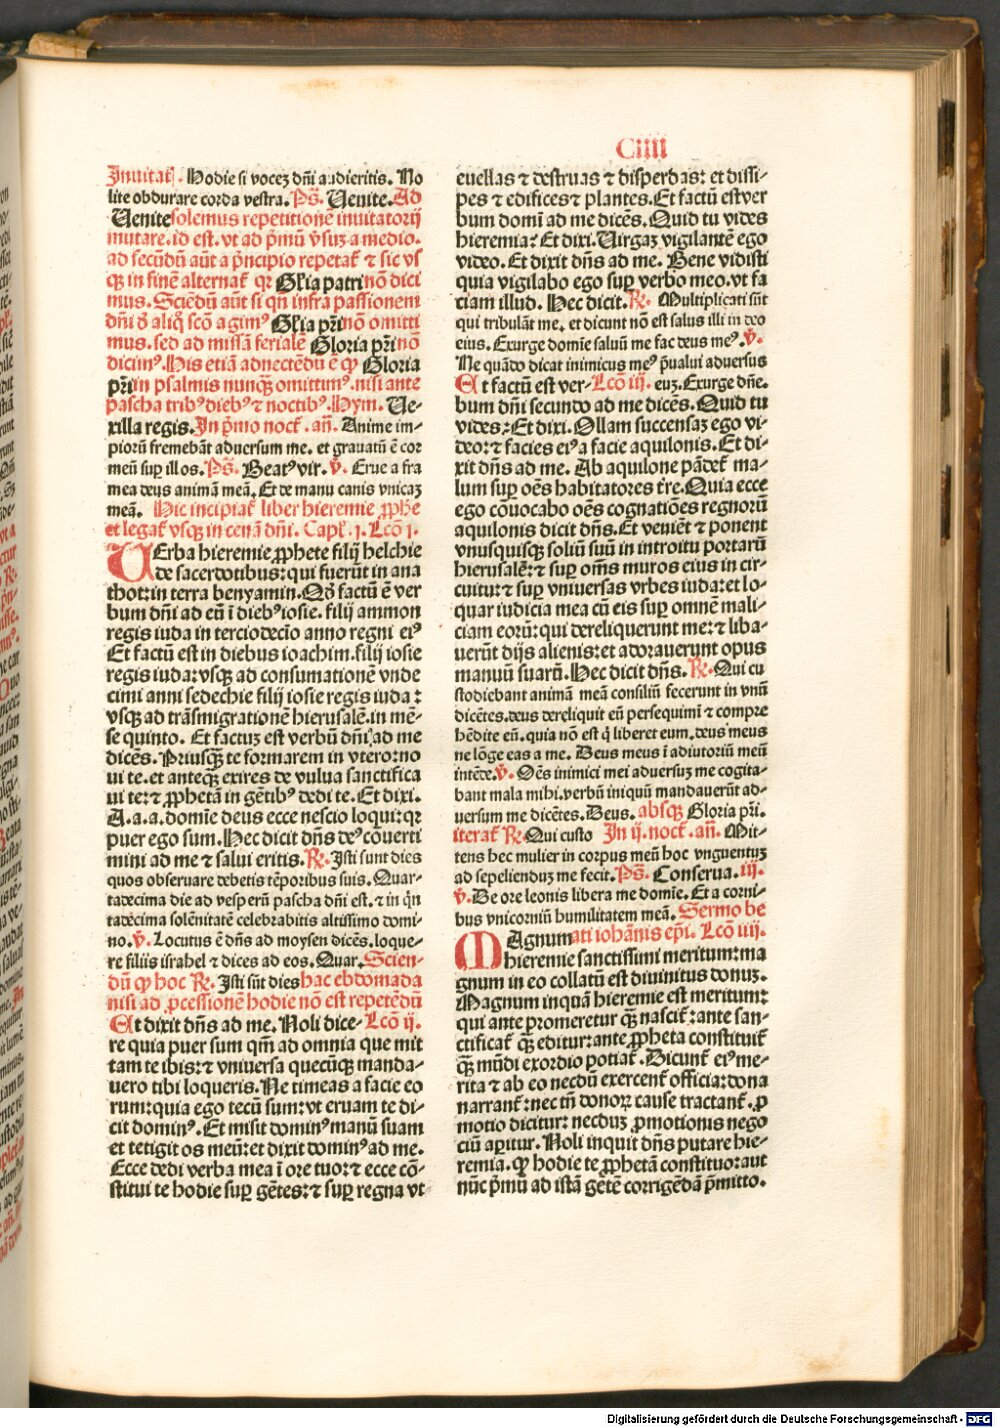 CIIII
Inuitat̃. Hodie si vocez dñi audieritis. No
lite obdurare corda vestra. Ps̃. Uenite. Ad
Uenite solemus repetitionē inuitatorij
mutare. id est. vt ad p̄mū v̄suꝫ a medio.
ad secūdū aūt a p̄ncipio repetat̃ ⁊ sic vs
qꝫ in finē alternat̃ qꝛ Gl̃ia patri nō dici
mus. Sciēdū aūt si qñ infra passionem
dñi ð aliqͦ scō agimꝰ Gl̃ia pr̄i nō omitti
mus. sed ad missā feriale Gloria pr̄i nō
dicimꝰ. His etiā adnectēdū ē ꝙ Gloria
pr̄i in psalmis nunqꝫ omittimꝰ. nisi ante
pascha tribꝰ diebꝰ ⁊ noctibꝰ. Hym. Ue-
xilla regis. In p̄mo noct̃. añ. Anime im-
piorū fremebāt aduersum me. et grauatū ē cor
meū suꝑ illos. Ps̃. Beatꝰ vir. v̄. Erue a fra
mea deus animā meā. Et de manu canis vnicaꝫ
meā. Hic incipiat̃ liber hieremie ꝓphe
et legat̃ vsqꝫ in cenā dñi. Capl̃. j. Lcō j.
UErba hieremie ꝓphete filij helchie
de sacerdotibus: qui fuerūt in ana
thot: in terra benyamin. Qð factū ē ver
bum dñi ad eū ī diebꝰ iosie. filij ammon
regis iuda in terciodecīo anno regni eiꝰ
Et factū est in diebus ioachim. filij iosie
regis iuda: vsqꝫ ad consumationē vnde
cimi anni sedechie filij iosie regis iuda:
vsqꝫ ad trāsmigrationē hierusalē. in mē-
se quinto. Et factuꝫ est verbū dñi ad me
dicēs. Priusqꝫ te formarem in vtero: no
ui te. et anteqꝫ exires de vulua sanctifica
ui te: ⁊ ꝓphetā in gētibꝰ dedi te. Et dixi.
A.a.a. domīe deus ecce nescio loqui: qꝛ
puer ego sum. Hec dicit dñs deꝰ cōuerti
mini ad me ⁊ salui eritis. R̃. Isti sunt dies
quos obseruare debetis tēporibus suis. Quar-
tadecima die ad vesperū pascha dñi est. ⁊ in q̄n
tadecima solēnitatē celebrabitis altissimo domi-
no. v̄. Locutus ē dñs ad moysen dicēs. loque-
re filiis israhel ⁊ dices ad eos. Quar. Scien-
dū ꝙ hoc R̃. Isti sūt dies hac ebdomada
nisi ad ꝓcessionē hodie nō est repetēdū
Et dixit dñs ad me. Noli dice- Lcō ij.
re quia puer sum qm̄ ad omnia que mit
tam te ibis: ⁊ vniuersa quecūqꝫ manda-
uero tibi loqueris. Ne timeas a facie eo
rum: quia ego tecū sum: vt eruam te di-
cit dominꝰ. Et misit dominꝰ manū suam
et tetigit os meū: et dixit dominꝰ ad me.
Ecce dedi verba mea ī ore tuo: ⁊ ecce cō-
stitui te hodie suꝑ gētes: ⁊ suꝑ regna vt
euellas ⁊ destruas ⁊ disperdas: et dissi-
pes ⁊ edifices ⁊ plantes. Et factū est ver
bum domī ad me dicēs. Quid tu vides
hieremia? Et dixi. Uirgaꝫ vigilantē ego
video. Et dixit dñs ad me. Bene vidisti
quia vigilabo ego suꝑ verbo meo. vt fa
ciam illud. Hec dicit. R̃. Multiplicati sūt
qui tribulāt me. et dicunt nō est salus illi in deo
eius. Exurge domīe saluū me fac deus meꝰ. v̄.
Ne quādo dicat inimicus meꝰ p̄ualui aduersus
Et factū est ver- Lcō iij. euꝫ. Exurge dñe.
bum dñi secundo ad me dicēs. Quid tu
vides: Et dixi. Ollam succensaꝫ ego vi-
deo: ⁊ facies eiꝰ a facie aquilonis. Et di-
xit dñs ad me. Ab aquilone pādet̃ ma-
lum suꝑ oēs habitatores t̄re. Quia ecce
ego cōuocabo oēs cognatiōes regnorū
aquilonis dicit dñs. Et veniēt ⁊ ponent
vnusquisqꝫ soliū suū in introitu portarū
hierusalē: ⁊ suꝑ om̄s muros eius in cir-
cuitu: ⁊ suꝑ vniuersas vrbes iuda: et lo-
quar iudicia mea cū eis suꝑ omnē mali-
ciam eorū: qui dereliquerunt me: ⁊ liba-
uerūt dijs alienis: et adorauerunt opus
manuū suarū. Hec dicit dñs. R̃. Qui cu
stodiebant animā meā consiliū fecerunt in vnū
dicētes. deus dereliquit eū persequimī ⁊ compre
hēdite eū. quia nō est q̄ liberet eum. deus meus
ne lōge eas a me. Deus meus ī adiutoriū meū
intēde. v̄. Oēs inimici mei aduersuꝫ me cogita-
bant mala mihi. verbū iniquū mandauerūt ad-
uersum me dicētes. Deus. absqꝫ Gloria pr̄i.
iterat̃ R̃. Qui custo In ij. noct̃. añ. Mit-
tens hec mulier in corpus meū hoc vnguentuꝫ
ad sepeliendū me fecit. Ps̃. Conserua. iij.
v̄. De ore leonis libera me domīe. Et a corni-
bus vnicorniū humilitatem meā. Sermo be
MAgnum ati iohānis ep̄i. Lcō iiij.
hieremie sanctissimi meritum: ma
gnum in eo collatū est diuinitus donuꝫ.
Magnum inquā hieremie est meritum:
qui ante promeretur qꝫ nascit̃: ante san-
ctificat̃ qꝫ editur: ante ꝓpheta constituit̃
qꝫ mūdi exordio potiat̃. Dicunt̃ eiꝰ me-
rita ⁊ ab eo necdū exercent̃ officia: dona
narrant̃: nec tñ donoꝝ cause tractant̃. ꝓ
motio dicitur: necduꝫ ꝓmotionis nego
ciū aꝑitur. Noli inquit dñs putare hie-
remia. ꝙ hodie te ꝓphetā constituo: aut
nūc p̄mū ad istā gētē corrigēdā p̄mitto.
Digitalisierung gefördert durch die Deutsche Forschungsgemeinschaft - DFG